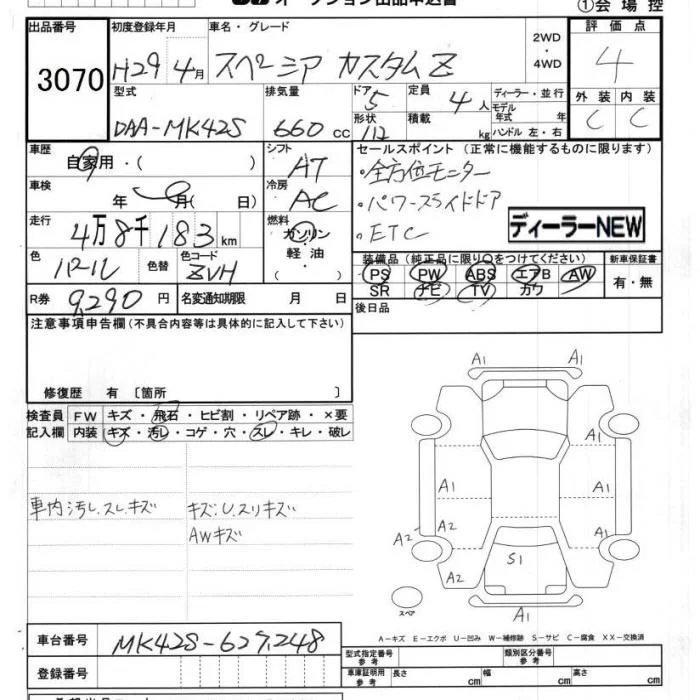 オークション出品申込書
①会場控
出品番号 3070
初度登録年月 H29年4月
車名・グレード スペーシア カスタムZ
2WD
・
4WD
評価点 4
外装 C 内装 C
型式 DAA-MK42S
排気量 660cc
ドア 5 形状 112
定員 4人 積載 kg
ディーラー・並行
モデル年式 年
ハンドル 左・右
車歴 自家用・( )
シフト AT
車検 年 月( 日)
冷房 AC
走行 4万8千183km
燃料 ガソリン・軽油・( )
色 パール 色替 色コード ZVH
R券 9,290円 名変通知期限 月 日
セールスポイント(正常に機能するものに限ります)
・全方位モニター
・パワースライドドア
・ETC
ディーラーNEW
装備品(純正品に限り○をつけてください) 新車保証書
PS PW ABS エアB AW 有・無
SR ナビ TV カワ
後日品
注意事項申告欄(不具合内容等は具体的に記入して下さい)
修復歴 有 〔箇所 〕
検査員 FW キズ・飛石・ヒビ割・リペア跡・×要
記入欄 内装 キズ・汚レ・コゲ・穴・スレ・キレ・破レ
車内汚レ.スレ.キズ キズ.U.スリキズ
AWキズ
A1 A1
A1
A1 A1
A2 A2 A1
S1
A2
A1
スペア
A−キズ E−エクボ U−凹み W−補修跡 S−サビ C−腐食 XX−交換済
車台番号 MK42S-627,248
登録番号
型式指定番号 参考 類別区分番号 参考
車庫証明用 参考 長さ cm 幅 cm 高さ cm